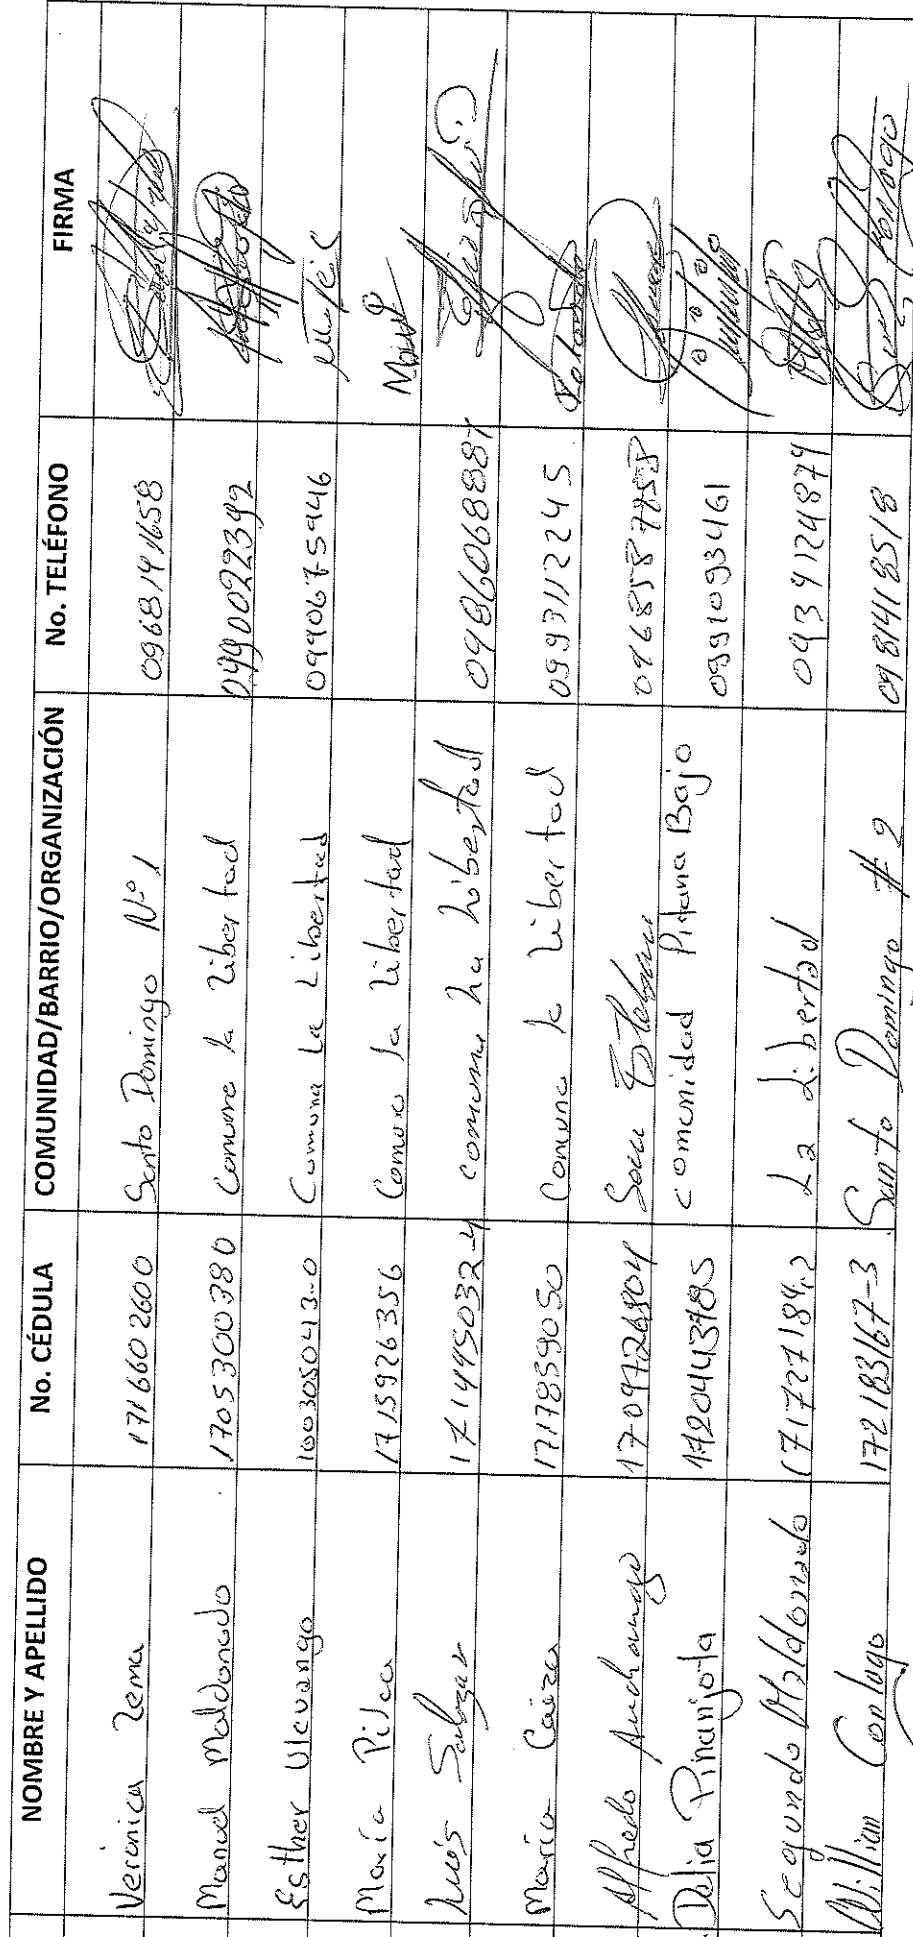 NOMBRE Y APELLIDO No. CÉDULA COMUNIDAD/BARRIO/ORGANIZACIÓN No. TELÉFONO FIRMA
Veronica Lema 1716602600 Santo Domingo Nº 1 0968141658
Manuel Maldonado 1705300380 Comuna la Libertad 0990022392
Esther Ulcuango 1003050413-0 Comuna La Libertad 0990675946
María Pilca 1715926356 Comuna la libertad MaríaP
Luis Salazar 171445032-4 comuna La libertad 0986068887
María Caiza 1717859050 Comuna la Libertad 0993112245
Alfredo Anchaluisa San Esteban
Delia Pinanjota 1720443785 comunidad Pitana Bajo 0991093461
Segundo Maldonado 171727184-2 La Libertad 0939124879
William Conlago 172183167-3 Santo Domingo # 2 0981418518